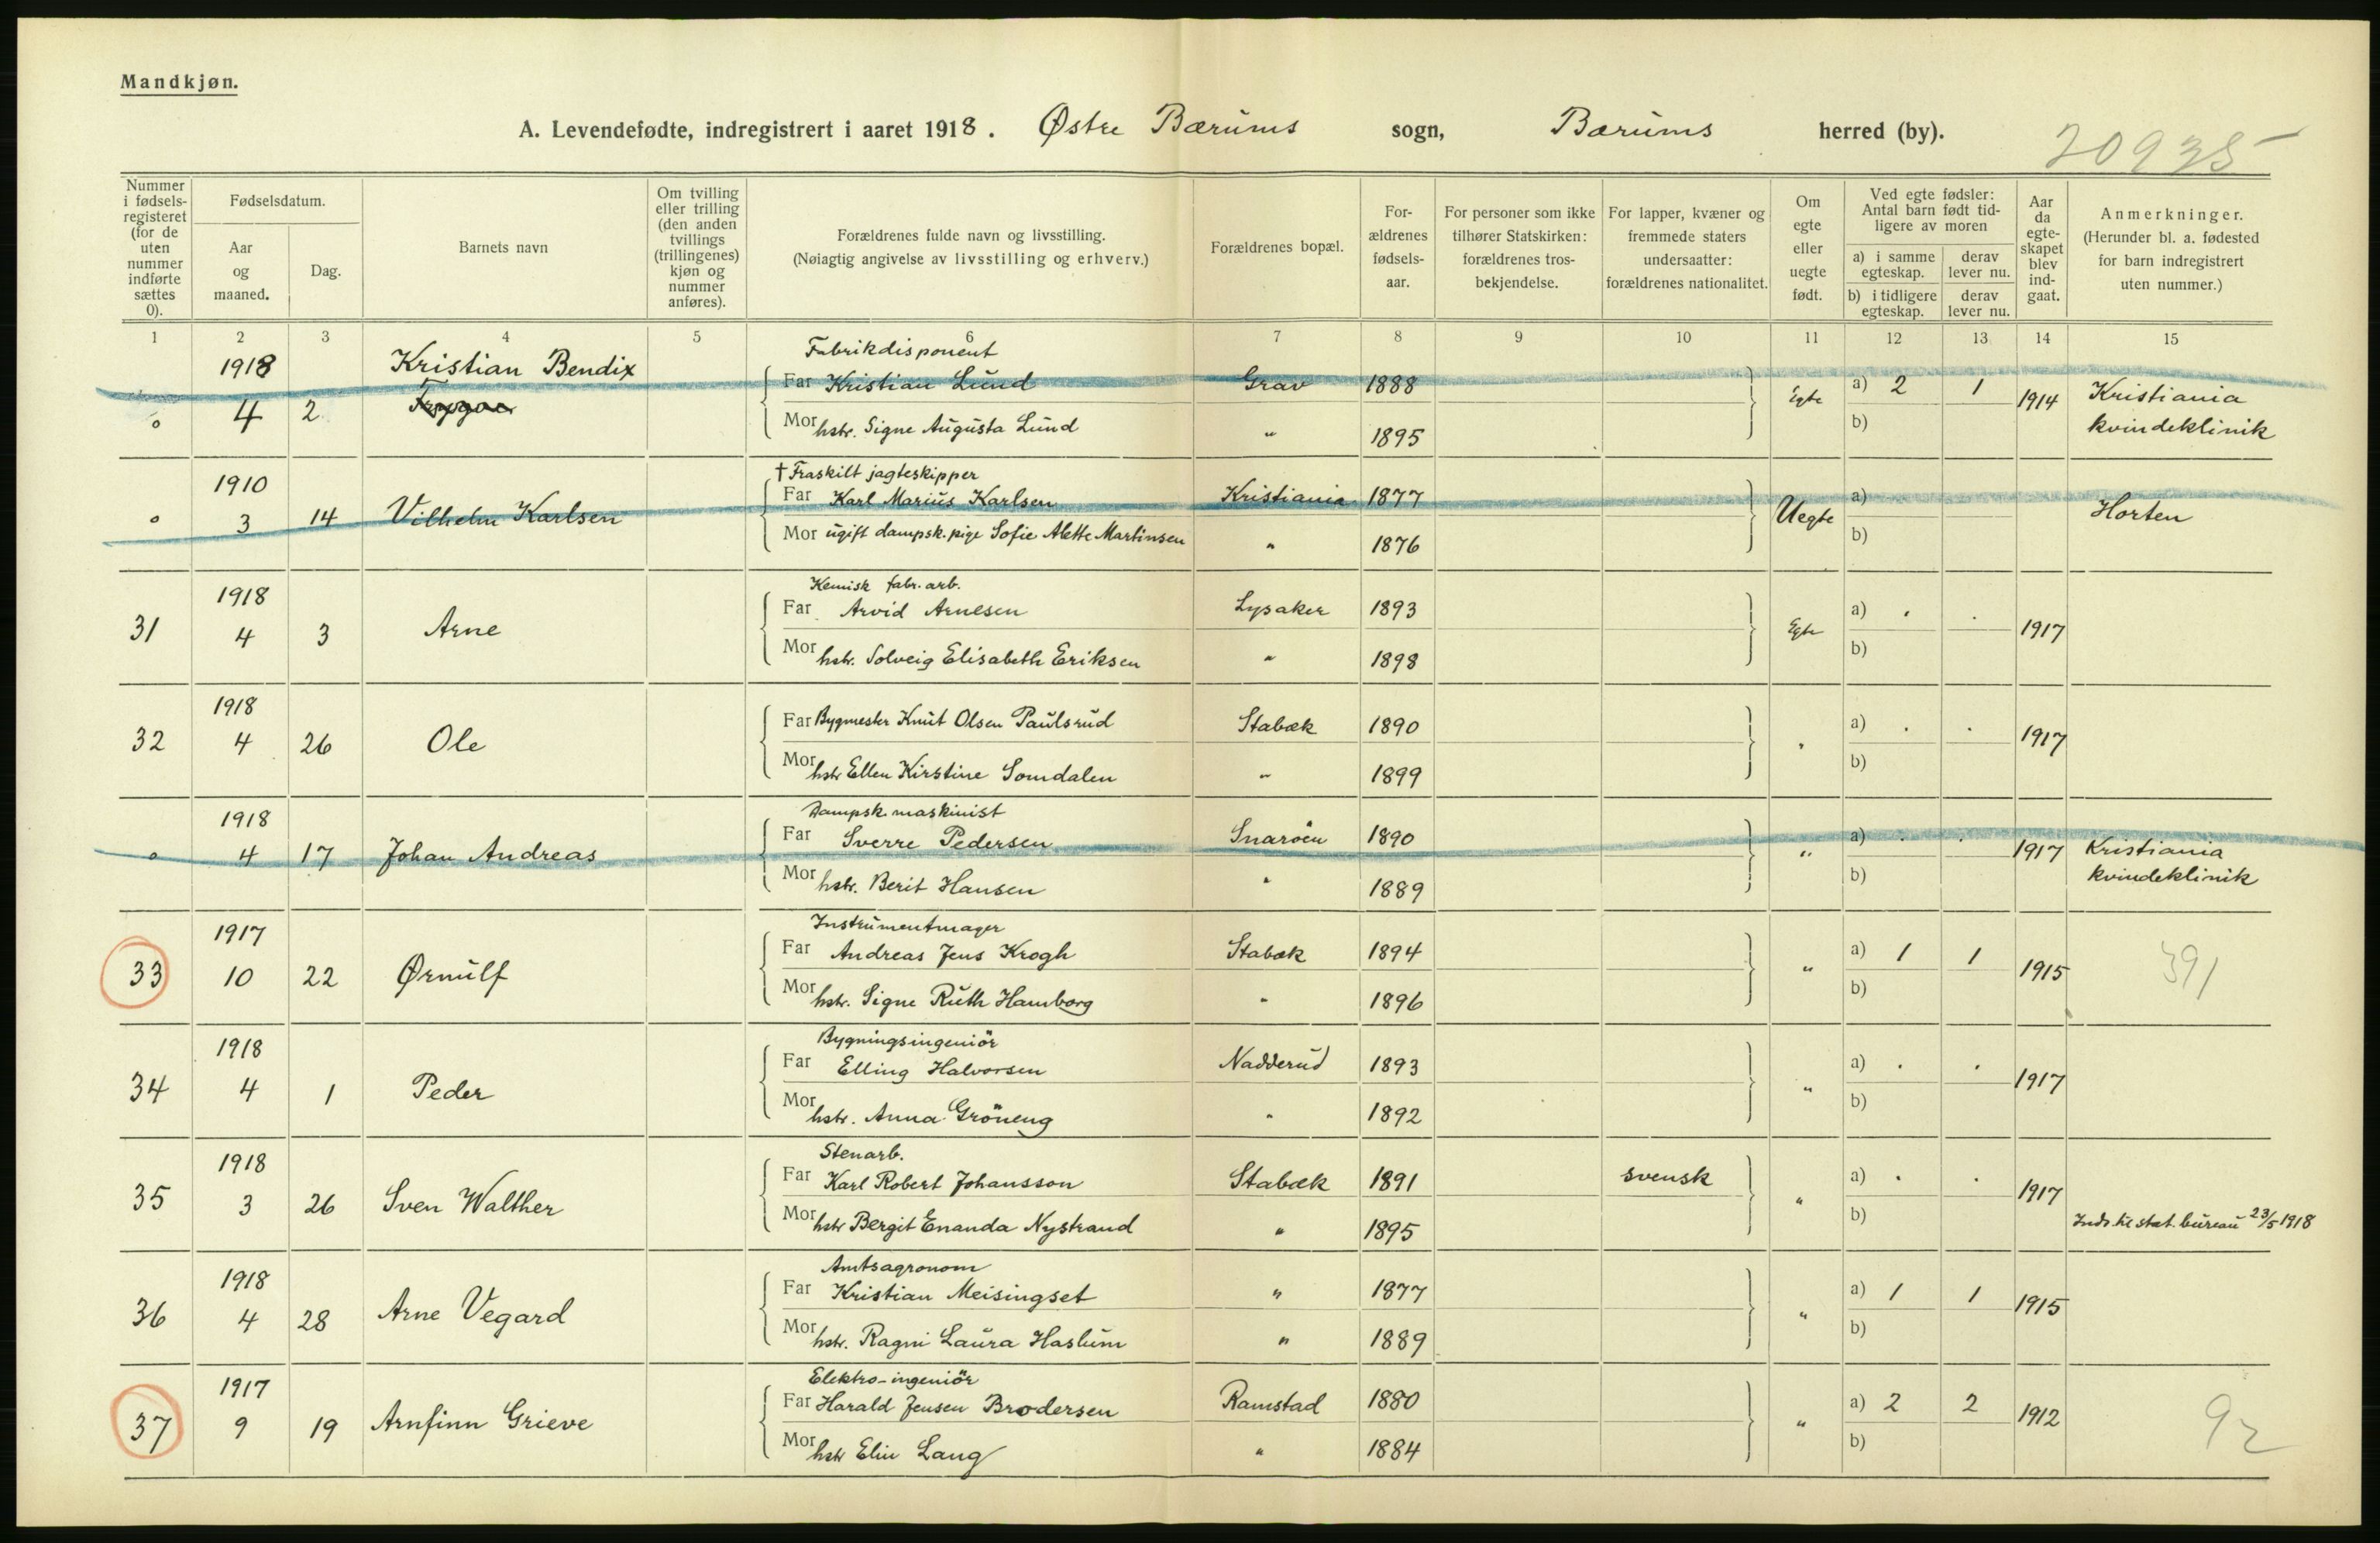 Mandkjøn.
A. Levendefødte, indregistrert i aaret 1918. Østre Bærums sogn, Bærums herred (by).
20935
Nummer i fødselsregisteret (for de uten nummer indførte sættes 0).
Fødselsdatum.
Aar og maaned.
Dag.
Barnets navn
Om tvilling eller trilling (den anden tvillings (trillingenes) kjøn og nummer anføres).
Forældrenes fulde navn og livsstilling.
(Nøiagtig angivelse av livsstilling og erhverv.)
Forældrenes bopæl.
Forældrenes fødselsaar.
For personer som ikke tilhører Statskirken: forældrenes trosbekjendelse.
For lapper, kvæner og fremmede staters undersaatter: forældrenes nationalitet.
Om egte eller uegte født.
Ved egte fødsler: Antal barn født tidligere av moren
a) i samme egteskap. derav lever nu.
b) i tidligere egteskap. derav lever nu.
Aar da egteskapet blev indgaat.
Anmerkninger.
(Herunder bl. a. fødested for barn indregistrert uten nummer.)
1 2 3 4 5 6 7 8 9 10 11 12 13 14 15
1918 Kristian Bendix Fabrikdisponent
Far Kristian Lund Grav 1888 Egte a) 2 1 1914 Kristiania
0 4 2
Mor hstr. Signe Augusta Lund " 1895 b) kvindeklinik
1910 † Fraskilt jagteskipper
0 3 14 Vilhelm Karlsen Far Karl Marius Karlsen Kristiania 1877 Uegte a) Horten
Mor ugift dampsk. pige Sofie Alette Martinsen " 1876 b)
1918 Kemisk fabr. arb.
31 4 3 Arne Far Arvid Arnesen Lysaker 1893 Egte a) . . 1917
Mor hstr. Solveig Elisabeth Eriksen " 1898 b)
1918
32 4 26 Ole Far Bygmester Knut Olsen Paulsrud Stabæk 1890 " a) . . 1917
Mor hstr Ellen Kirstine Somdalen " 1899 b)
1918 Dampsk. maskinist
0 4 17 Johan Andreas Far Sverre Pedersen Snarøen 1890 " a) . . 1917 Kristiania
Mor hstr. Berit Hansen " 1889 b) kvindeklinik
1917 Instrumentmager
33 10 22 Ørnulf Far Andreas Jens Krogh Stabæk 1894 " a) 1 1 1915 391
Mor hstr. Signe Ruth Hamborg " 1896 b)
1918 Bygningsingeniör
34 4 1 Peder Far Elling Halvorsen Nadderud 1893 " a) . . 1917
Mor hstr. Anna Gröneng " 1892 b)
1918 Stenarb.
35 3 26 Sven Walther Far Karl Robert Johansson Stabæk 1891 svensk " a) . . 1917
Mor hstr Bergit Enanda Nystrand " 1895 b) Inds. til stat. bureau 23/5 1918
1918 Amtsagronom
36 4 28 Arne Vegard Far Kristian Meisingset " 1877 " a) 1 1 1915
Mor hstr. Ragni Laura Haslum " 1889 b)
1917 Elektro-ingeniör
37 9 19 Arnfinn Grieve Far Harald Jensen Brodersen Ramstad 1880 " a) 2 2 1912 92
Mor hstr Elin Lang " 1884 b)